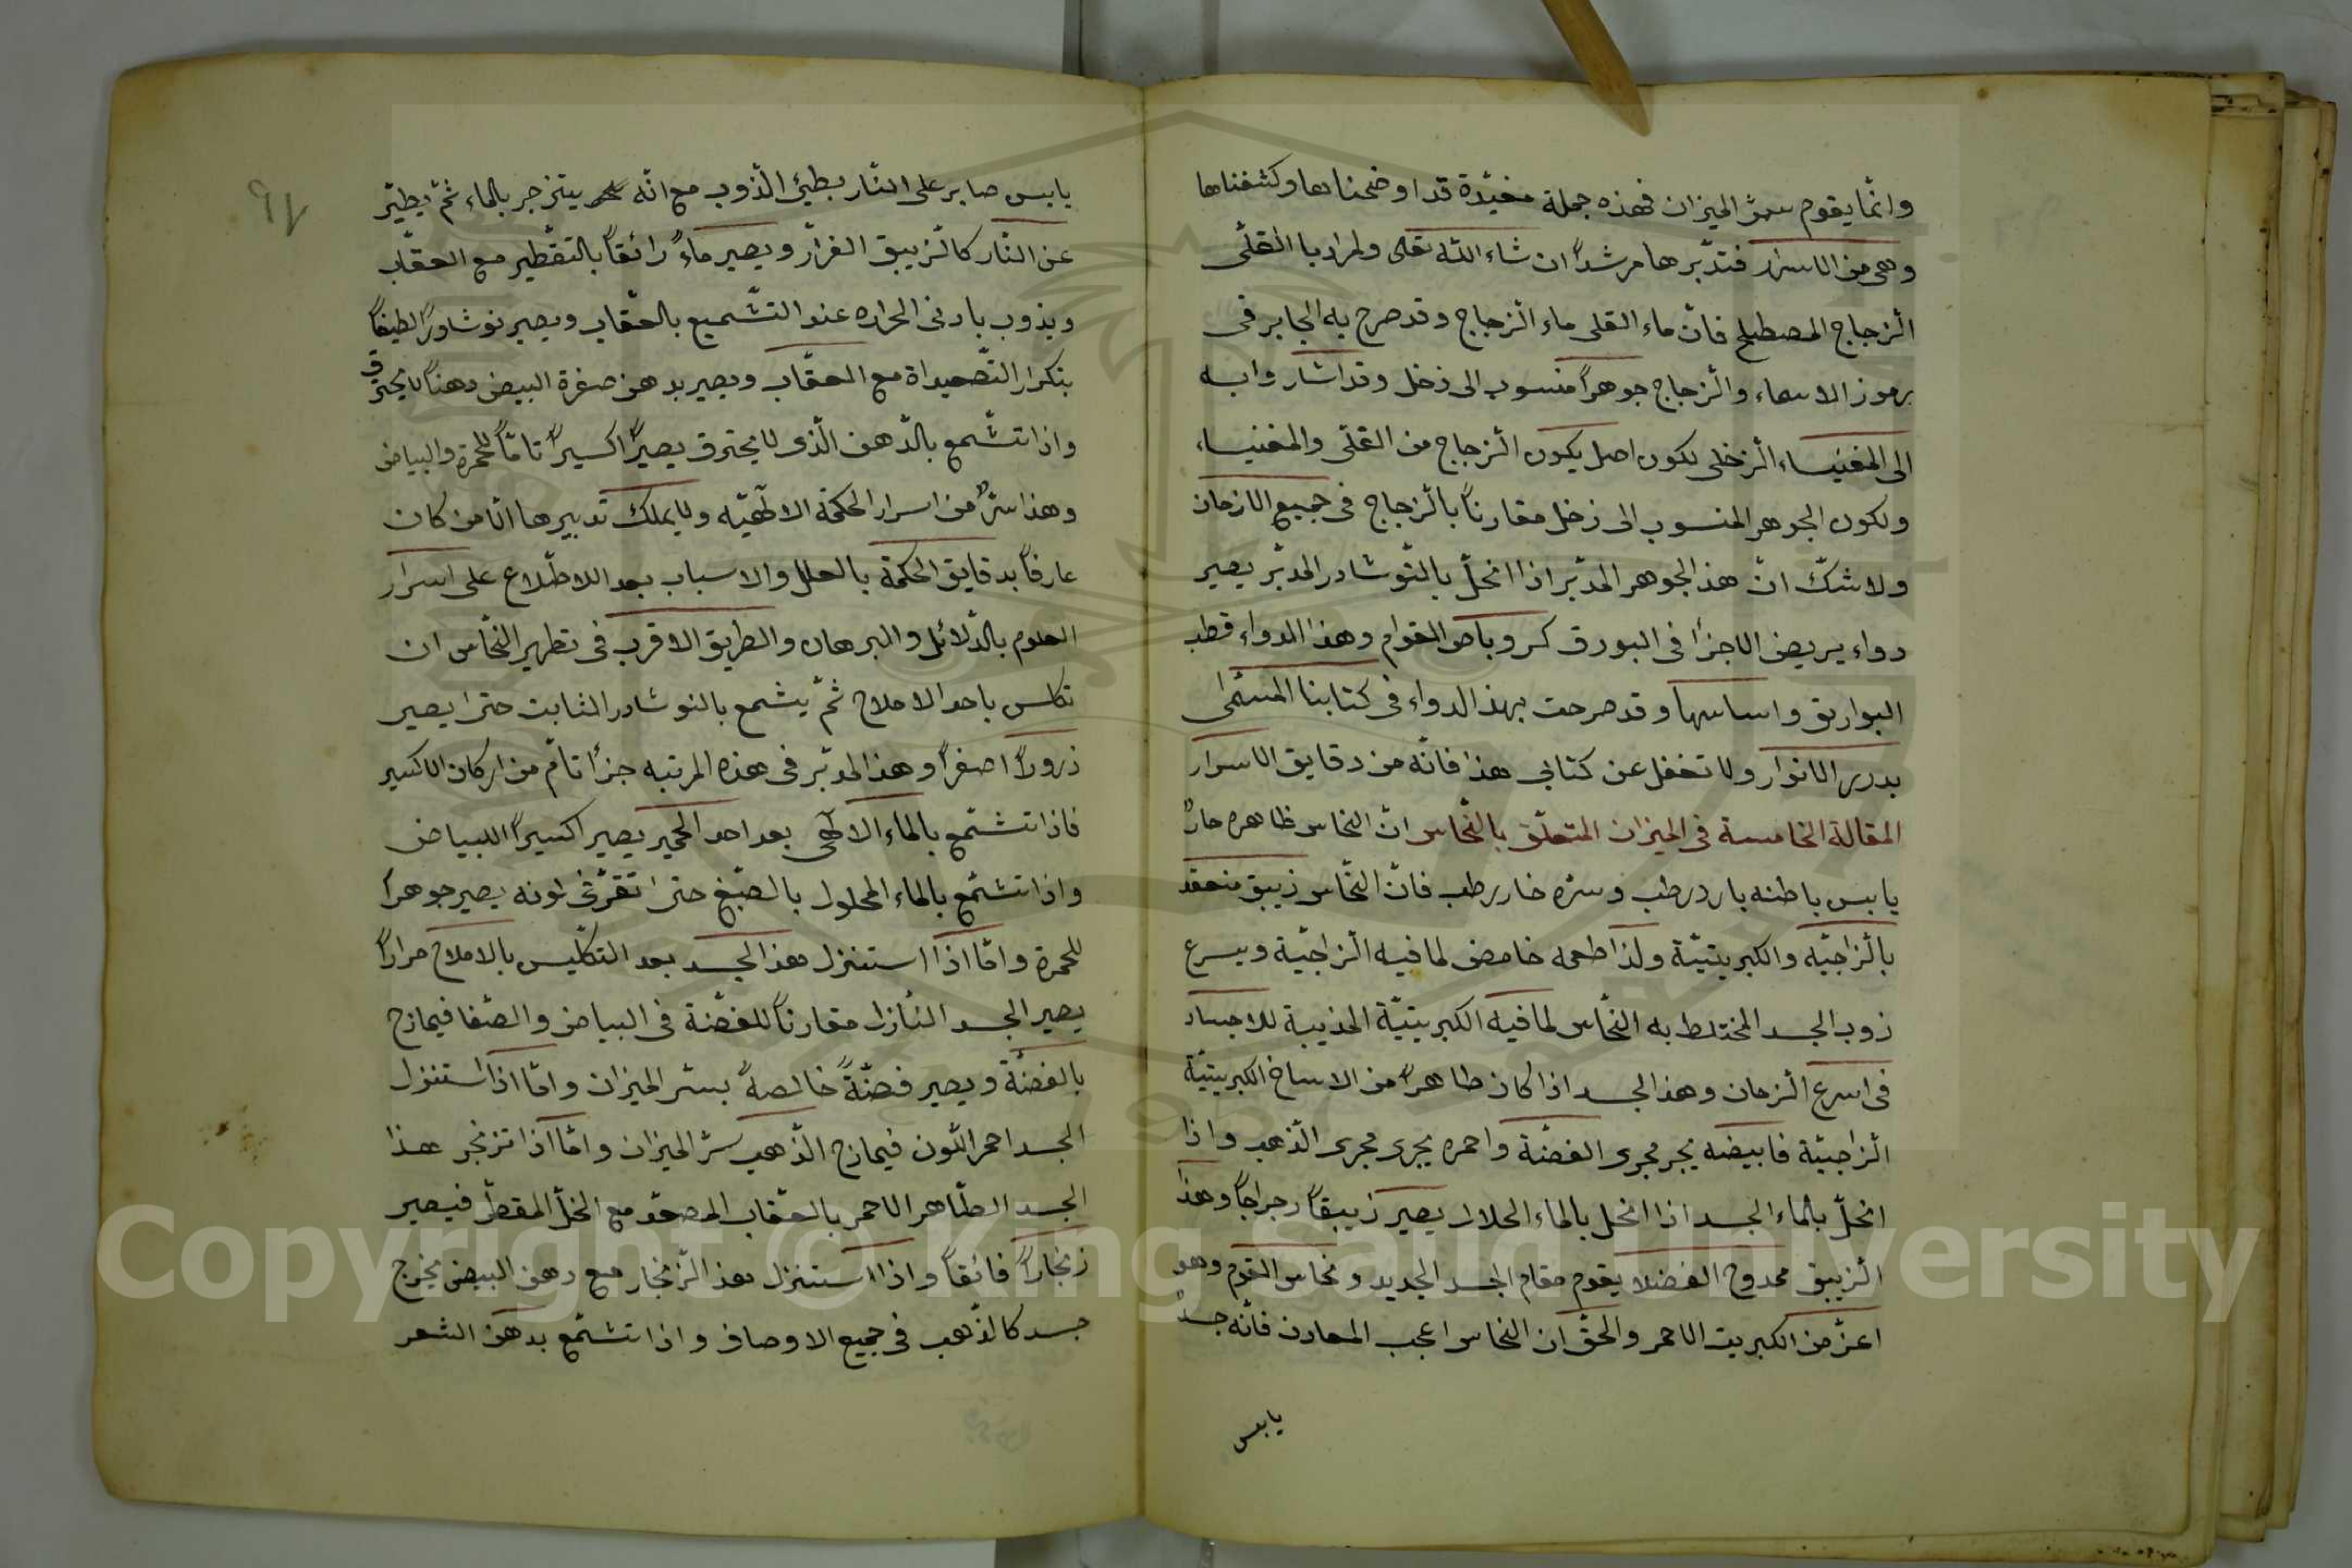 وانّما يقوم سرّ الميزان فهذه جملة مفيدة قد اوضحناها وكشفناها
وهى من الاسرار فتدبّرها مرشداً ان شاء اللّه تعلى ولمراد بالقلّى
الزجاج المصطلح فانّ ماء القلى ماء الزجاج وقد صرح به الجابر فى
برموز الاسماء والزجاج جوهراً منسوب الى زخل وقد اشار وابه
الى المغنيساء الزخلى لكون اصل يكون الزجاج من القلّى والمغنيساء
ولكون الجوهر المنسوب الى زخل مقارناً بالزجاج فى جميع الازمان
ولا شكّ انّ هذ الجوهر المدبّر اذا انحلّ بالنّوشادر المدبّر يصير
دواء يريض الاجزأ فى البورق كر وباص القوام وهذ الدواء قطد
البواريق واساسها وقد صرحت بهذ الدواء فى كتابنا المسمّى
بدرر الانوار ولا تغفل عن كتابى هذا فانّه من دقايق الاسرار
المقالة الخامسة فى الميزان المتعلّق بالنّحاس انّ النحاس ظاهره حارٌ
يابس باطنه بارد رطب وسرّه خار رطب فانّ النحّاس زيبق منعقد
بالزاجيّه والكبريتيّة ولذا طعمه خامض لما فيه الزاجيّة ويسرع
زوب الجسد المختلط به النحّاس لما فيه الكبريتيّة المذيبة للاجساد
فى اسرع الزمان وهذ الجسد اذا كان طاهراً من الاساخ الكبريتيّة
الزاجيّة فابيضه يجر مجرى الفضّة واحمره يجرى مجرى الذّهب واذا
انحلّ بالماء الجسد اذا انحل بالماء الحلال يصير زيبقاً رجراجاً وهذا
الزيبق ممدوح الفضلا يقوم مقام الجسد الجديد ونحاس القوم وهو
اعزّ من الكبريت الاحمر والحقّ ان النحاس اعجب المعادن فانّه جسدٌ
يابس
يابس صابر على النّار بطئ الذّوب مع انّه يتزجر بالماء ثمّ يطيّر
عن النّار كالزيبق الفرّار ويصير ماءً رائقاً بالتقطير مع العقّاب
ويذوب بادنى الحراره عند التشّميع بالعقّاب ويصير نوشادراً لطيفاً
بتكرار التصّعيداة مع العقّاب ويصير بدهن صفرة البيض دهناً لا يحترق
واذا تشّمع بالدّهن الّذى لا يحترق يصيراً اكسيراً تامّاً للحمرة والبياض
وهذا سرٌّ من اسرار الحكمة الالٓهيّه ولا يملك تدبيرها الّا من كان
عارفاً بدقايق الحكمة بالعلل والاسباب بعد الاطّلاع على اسرار
العلوم بالدّلائل والبرهان والطريق الاقرب فى تطهير النحّاس ان
تكلس باحد الاملاح ثمّ يشمع بالنوشادر الثابت حتىٰ يصير
ذروراً اصفراً وهذ المدبّر فى هذه المرتبه جزأ تامّ من اركان الاكسير
فاذا تشتمع بالماء الالٓهى بعد احد الحجير يصير اكسيراً اللبياض
واذا تشتمع بالماء المحلول بالصّبغ حتى تفرّغى لونه يصير جوهراً
للحمرة وامّا اذا استنزل هذ الجسد بعد التكلّيس بالاملاح مراراً
يصير الجسد النأزل مقارناً للفضّة فى البياض والصّفا فيمازج
بالفضّة ويصير فضّةً خالصةً بسّر الميزان وامّا اذا استنزل
الجسد احمر اللّون فيمازج الذّهب سرّ الميزان وامّا اذا تزنجر هذا
الجسد الطّاهر الاحمر بالعقّاب المصعّد مع الخلّ المقطّر فيصير
زنجاراً فائقاً واذا استنزل هذ الزّنجار مع دهن البيض يخرج
جسد كالذّهب فى جميع الاوصاف واذا تشتمّع بدهن الشعر
Copyright © King Saud University